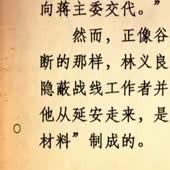 向蒋主委交代。”
然而，正像谷
断的那样，林义良
隐蔽战线工作者并
他从延安走来，是
材料”制成的。